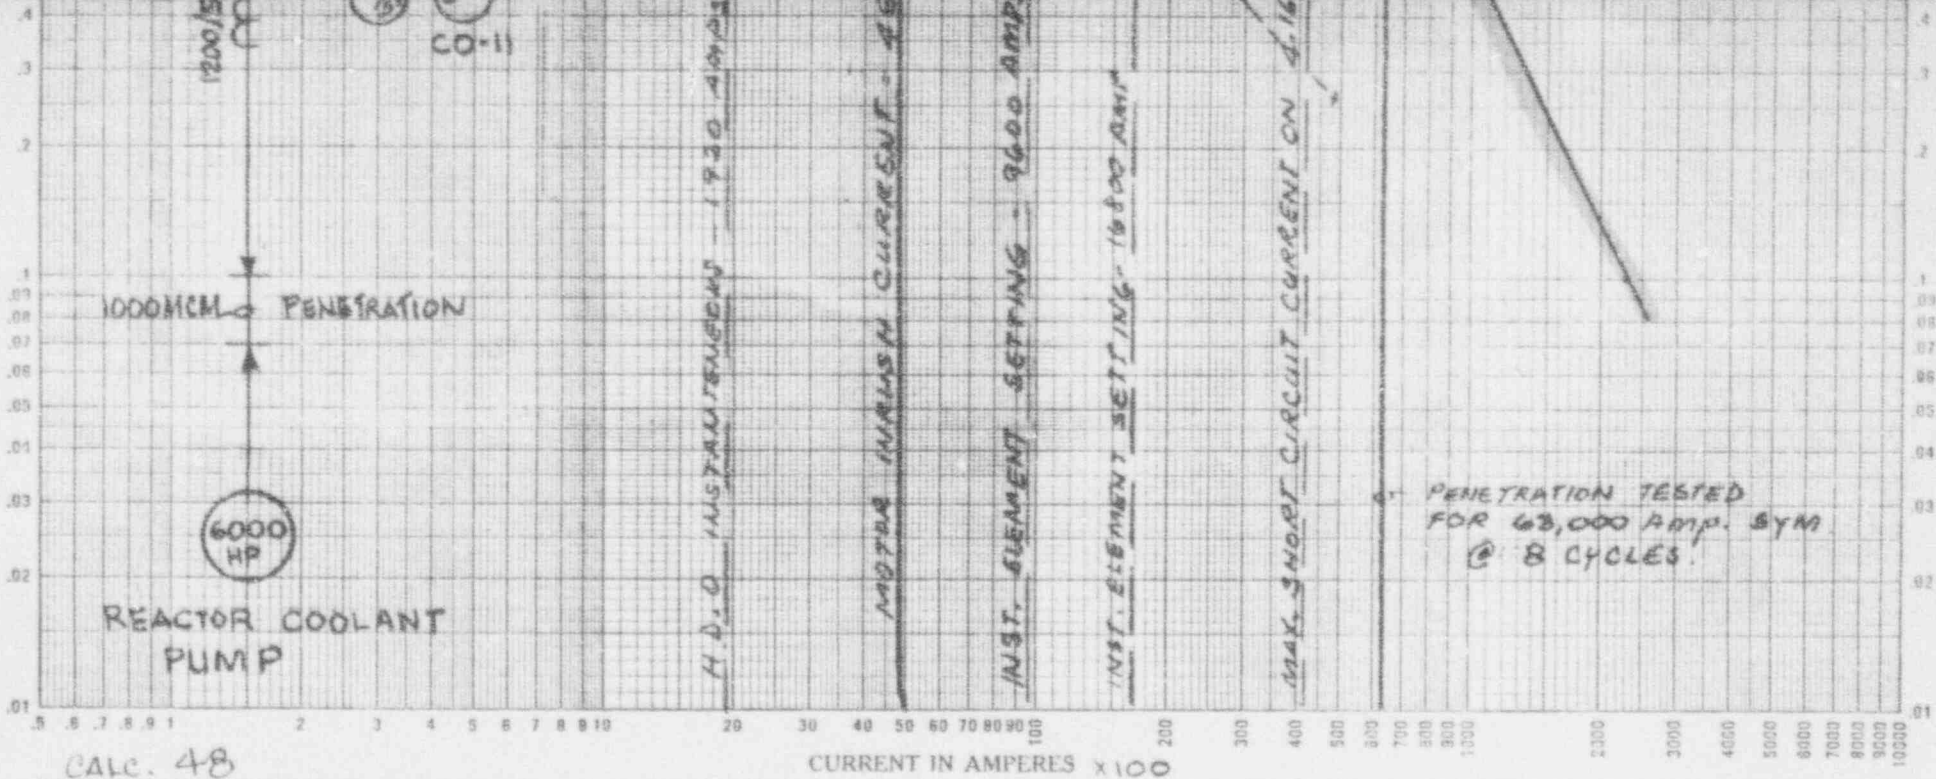 1200/5
CO-11
1000MCM PENETRATION
6000
HP
REACTOR COOLANT
PUMP
H.D.O INSTANTENEOUS - 1920 AMPS
MOTOR INRUSH CURRENT -
INST. ELEMENT SETTING - 9600 AMP
INST. ELEMENT SETTING - 16800 AMP
MAX. SHORT CIRCUIT CURRENT ON 4.16
PENETRATION TESTED
FOR 63,000 AMP. SYM
@ 8 CYCLES.
.4 .3 .2 .1 .09 .08 .07 .06 .05 .04 .03 .02 .01
.4 .3 .2 .1 .09 .08 .07 .06 .05 .04 .03 .02 .01
.5 .6 .7 .8 .9 1 2 3 4 5 6 7 8 9 10 20 30 40 50 60 70 80 90 100 200 300 400 500 600 700 800 900 1000 2000 3000 4000 5000 6000 7000 8000 9000 10000
CURRENT IN AMPERES X100
CALC. 48